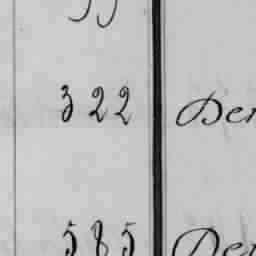 322 Der
585 Der